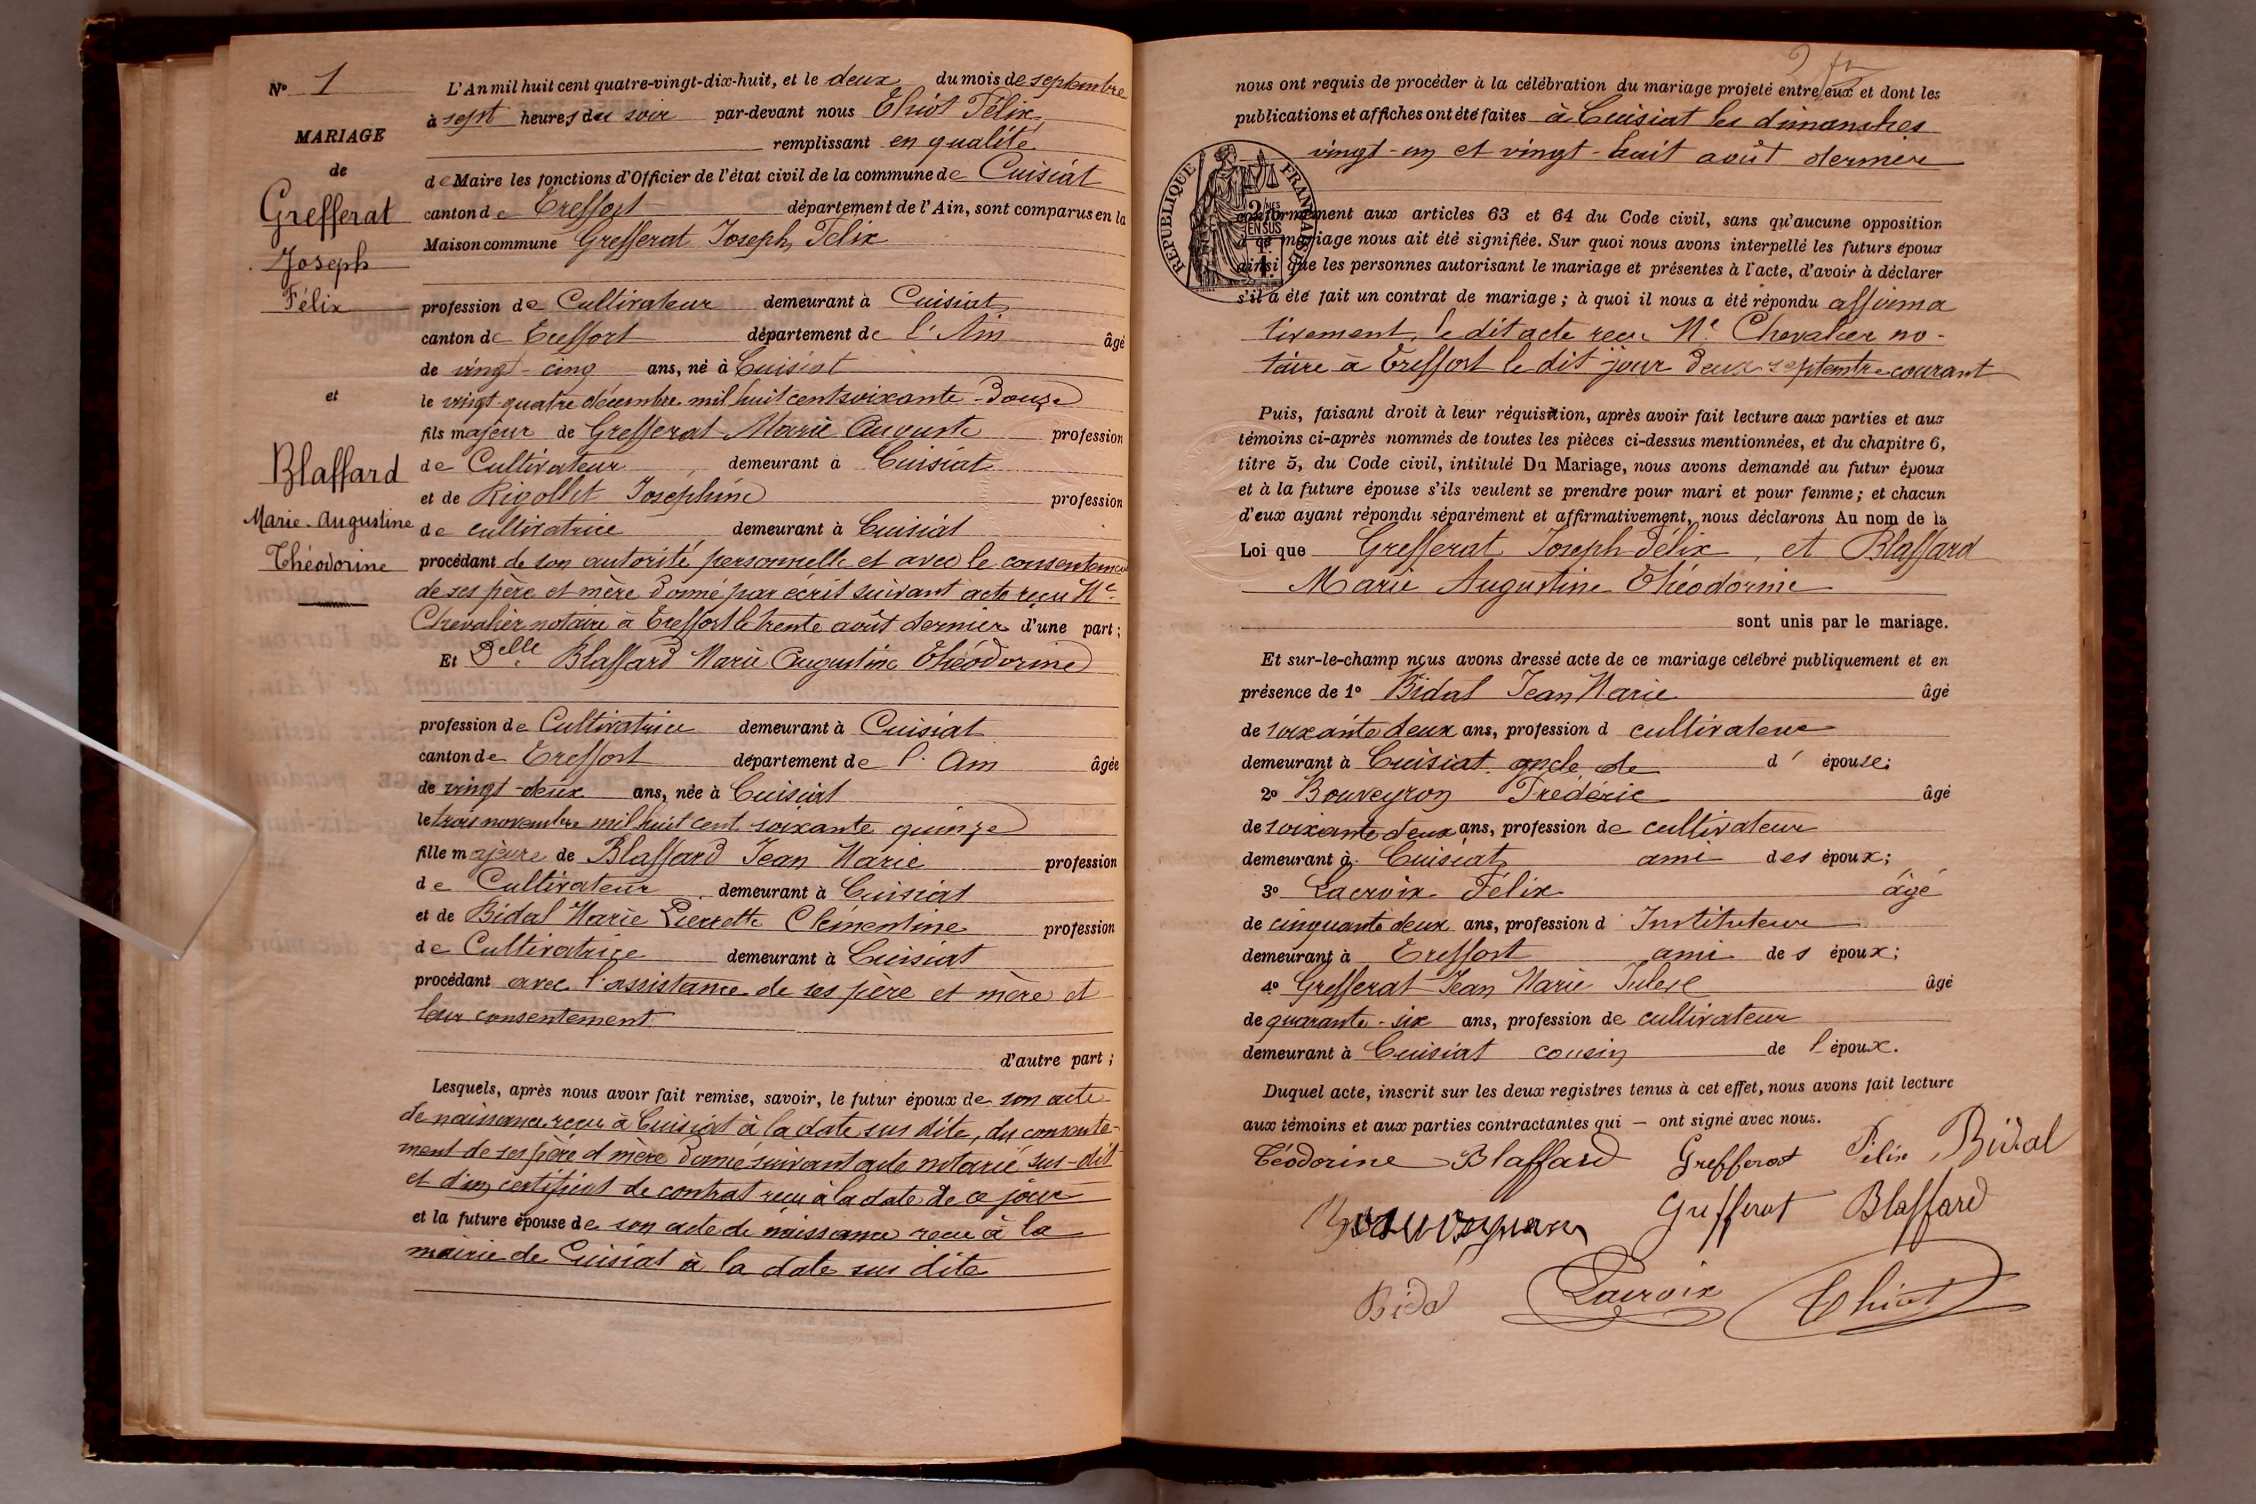 Nº 1
MARIAGE
de
Grefferat
Joseph
Félix
et
Blaffard
Marie-Augustine
Théodorine
L'An mil huit cent quatre-vingt-dix-huit, et le deux du mois de septembre
à sept heures du soir par-devant nous Thiot Félix,
remplissant en qualité
de Maire les fonctions d'Officier de l'état civil de la commune de Cuisiat
canton de Treffort département de l'Ain, sont comparus en la
Maison commune Grefferat Joseph Félix
profession de Cultivateur demeurant à Cuisiat
canton de Treffort département de l'Ain âgé
de vingt-cinq ans, né à Cuisiat
le vingt quatre décembre mil huit cent soixante-douze
fils majeur de Grefferat Marie Auguste profession
de Cultivateur demeurant à Cuisiat
et de Rigollet Josephine profession
de cultivatrice demeurant à Cuisiat
procédant de son autorité personnelle et avec le consentement
de ses père et mère donné par écrit suivant acte reçu Me
Chevalier notaire à Treffort le trente août dernier d'une part;
Et Delle Blaffard Marie Augustine Théodorine
profession de Cultivatrice demeurant à Cuisiat
canton de Treffort département de l'Ain âgée
de vingt-deux ans, née à Cuisiat
le trois novembre mil huit cent soixante quinze
fille majeure de Blaffard Jean Marie profession
de Cultivateur demeurant à Cuisiat
et de Bidal Marie Pierrette Clémentine profession
de Cultivatrice demeurant à Cuisiat
procédant avec l'assistance de ses père et mère et
leur consentement
d'autre part;
Lesquels, après nous avoir fait remise, savoir, le futur époux de son acte
de naissance reçu à Cuisiat à la date sus dite, du consente-
ment de ses père et mère donné suivant acte notarié sus-dit
et d'un certificat de contrat reçu à la date de ce jour
et la future épouse de son acte de naissance reçu à la
mairie de Cuisiat à la date sus dite
nous ont requis de procéder à la célébration du mariage projeté entre eux et dont les
publications et affiches ont été faites à Cuisiat les dimanches
vingt-un et vingt-huit août dernier
RÉPUBLIQUE FRANÇAISE
2/10MES EN SUS
conformément aux articles 63 et 64 du Code civil, sans qu'aucune opposition
à ce mariage nous ait été signifiée. Sur quoi nous avons interpellé les futurs époux
ainsi que les personnes autorisant le mariage et présentes à l'acte, d'avoir à déclarer
s'il a été fait un contrat de mariage; à quoi il nous a été répondu affirma
tivement, le dit acte reçu Me Chevalier no-
taire à Treffort le dit jour deux septembre courant
Puis, faisant droit à leur réquisition, après avoir fait lecture aux parties et aux
témoins ci-après nommés de toutes les pièces ci-dessus mentionnées, et du chapitre 6,
titre 5, du Code civil, intitulé Du Mariage, nous avons demandé au futur époux
et à la future épouse s'ils veulent se prendre pour mari et pour femme; et chacun
d'eux ayant répondu séparément et affirmativement, nous déclarons Au nom de la
Loi que Grefferat Joseph Félix, et Blaffard
Marie Augustine Théodorine
sont unis par le mariage.
Et sur-le-champ nous avons dressé acte de ce mariage célébré publiquement et en
présence de 1º Bidal Jean Marie âgé
de soixante deux ans, profession d cultivateur
demeurant à Cuisiat oncle de d' épouse;
2º Bouveyron Frédéric âgé
de soixante deux ans, profession de cultivateur
demeurant à Cuisiat ami des époux;
3º Lacroix Félix âgé
de cinquante deux ans, profession d Instituteur
demeurant à Treffort ami des époux;
4º Grefferat Jean Marie Jules âgé
de quarante-six ans, profession de cultivateur
demeurant à Cuisiat cousin de l'époux.
Duquel acte, inscrit sur les deux registres tenus à cet effet, nous avons fait lecture
aux témoins et aux parties contractantes qui — ont signé avec nous.
Téodorine Blaffard Grefferat Félix Bidal
Bouveyron Grefferat Blaffard
Bidal Lacroix Thiot